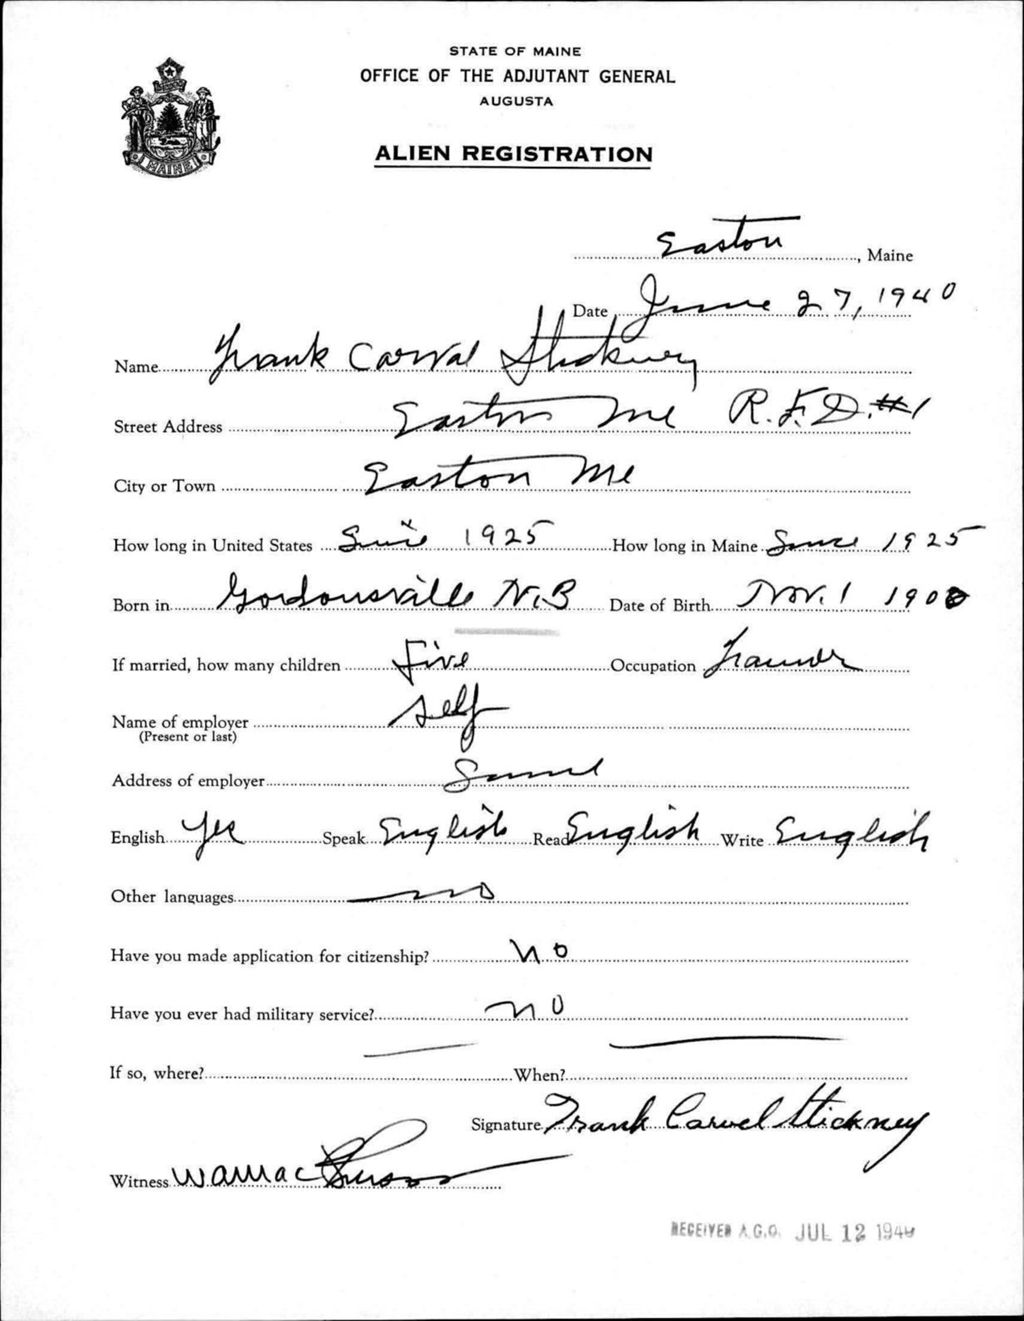 STATE OF MAINE
OFFICE OF THE ADJUTANT GENERAL
AUGUSTA
MAINE
ALIEN REGISTRATION
Easton, Maine
Date June 27, 1940
Name Frank Carval Stickney
Street Address Easton Me R.F.D. #1
City or Town Easton Me
How long in United States Since 1925 How long in Maine Since 1925
Born in Gordonsville N.B Date of Birth Nov. 1 1900
If married, how many children Five Occupation Farmer
Name of employer Self
(Present or last)
Address of employer Same
English Yes Speak English Read English Write English
Other languages no
Have you made application for citizenship? No
Have you ever had military service? no
If so, where? When?
Signature Frank Carvel Stickney
Witness
RECEIVED A.G.O. JUL 12 1940